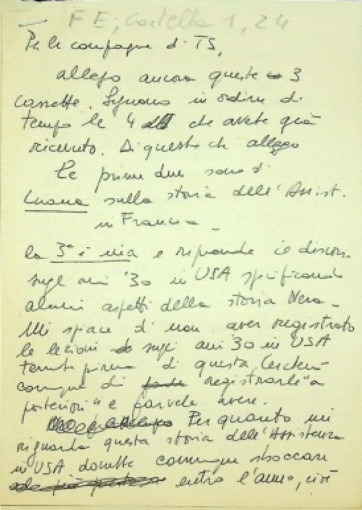 F E, Cartella 1, 24
Per le compagne di TS,
allego ancora queste 3
cassette. Seguono in ordine di
tempo le 4 che avete già
ricevuto. Di queste che allego
le prime due sono di
Luana sulla storia dell'Assist.
in Francia -
la 3ª è mia e riprende il discorso
sugli anni '30 in USA specificando
alcuni aspetti della storia Nera -
Mi spiace di non aver registrato
le lezioni sugli anni 30 in USA
tenute prima di questa. Cercherò
comunque di registrarle "a
posteriori" e farvele avere.
Per quanto mi
riguarda questa storia dell'Assistenza
in USA dovrebbe comunque sboccare
entro l'anno, cioè